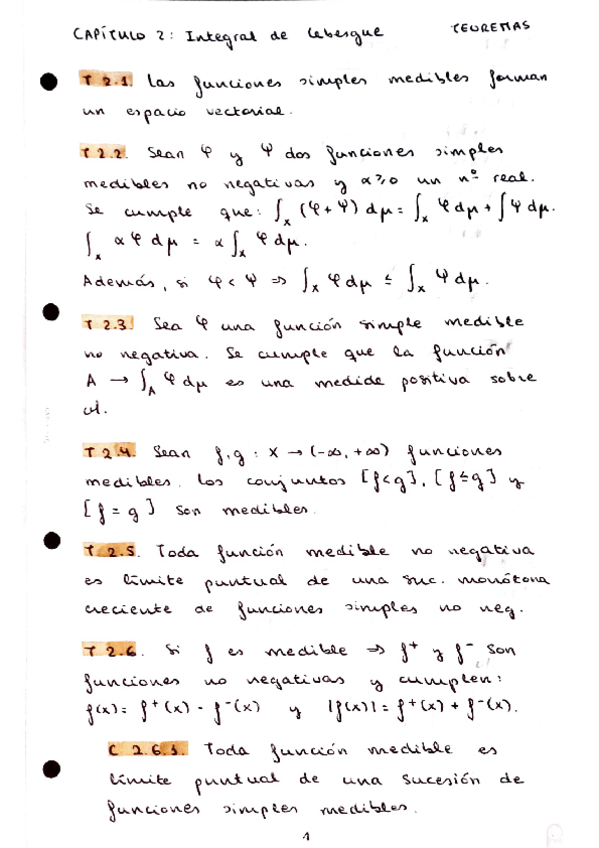 CAPÍTULO 2: Integral de Lebesgue TEOREMAS
T 2.1. Las funciones simples medibles forman
un espacio vectorial.
T 2.2. Sean φ y Ψ dos funciones simples
medibles no negativas y α≥0 un nº real.
Se cumple que: ∫_X (φ+Ψ) dμ = ∫_X φ dμ + ∫Ψ dμ.
∫_X α φ dμ = α ∫_X φ dμ.
Además, si φ < Ψ ⇒ ∫_X φ dμ ≤ ∫_X Ψ dμ.
T 2.3. Sea φ una función simple medible
no negativa. Se cumple que la función
A → ∫_A φ dμ es una medida positiva sobre
𝒜.
T 2.4. Sean f,g : X → (-∞, +∞) funciones
medibles. Los conjuntos [f<g], [f≤g] y
[f = g] son medibles.
T 2.5. Toda función medible no negativa
es límite puntual de una suc. monótona
creciente de funciones simples no neg.
T 2.6. Si f es medible ⇒ f⁺ y f⁻ son
funciones no negativas y cumplen:
f(x) = f⁺(x) - f⁻(x) y |f(x)| = f⁺(x) + f⁻(x).
C 2.6.1. Toda función medible es
límite puntual de una sucesión de
funciones simples medibles.
1